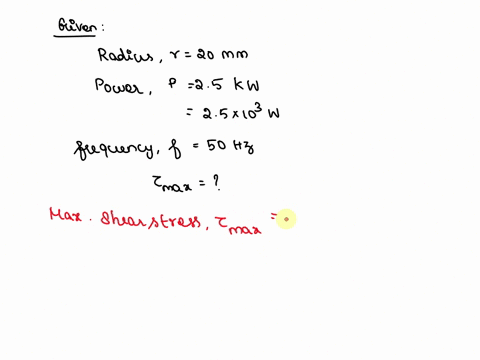 Given:
Radius, r = 20 mm
Power, P = 2.5 kW
= 2.5 × 10³ W
frequency, f = 50 Hz
τmax = ?
Max. Shear stress, τmax =